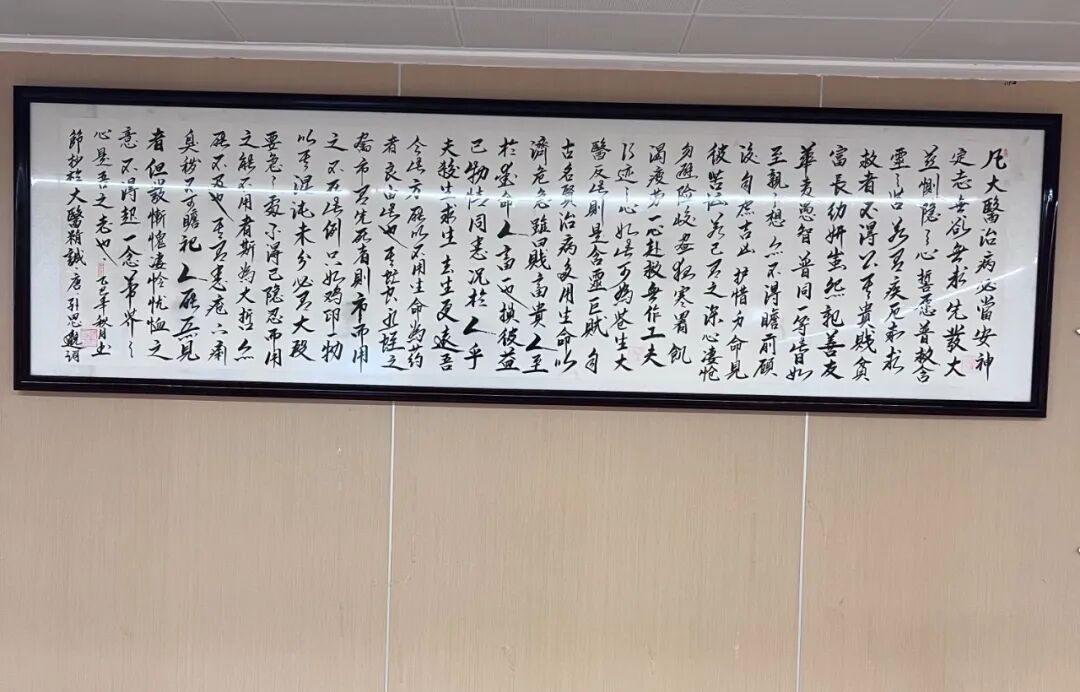 凡大醫治病必當安神
定志無欲無求先發大
慈惻隱之心誓愿普救含
靈之苦若有疾厄來求
救者不得其貴賤貧
富長幼妍蚩怨親善友
華夷愚智普同一等皆如
至親之想亦不得瞻前顧
後自慮吉凶護惜身命見
彼苦惱若己有之深心悽愴
勿避險巇晝夜寒暑飢
渴疲勞一心赴救無作工夫
行迹之心如此可為蒼生大
醫反此則是含靈巨賊自
古名賢治病多用生命以
濟危急雖曰賤畜貴人至
於愛命人畜一也損彼益
己物情同患況於人乎
夫殺生求生去生更遠吾
今此方所以不用生命為药
者良由此也其虻蟲水蛭之
屬市有先死者則市而用
之不在此例只如鸡卵一物
以其混沌未分必有大段
要急之處不得已隱忍而用
之能不用者斯為大哲亦
所不及也其有患下痢
臭穢不可瞻視人所惡見
者但發慚愧悽憐憂恤之
意不得起一念蒂芥之
心是吾之志也 乙巳年秋月書
節抄於大醫精誠 唐孙思邈